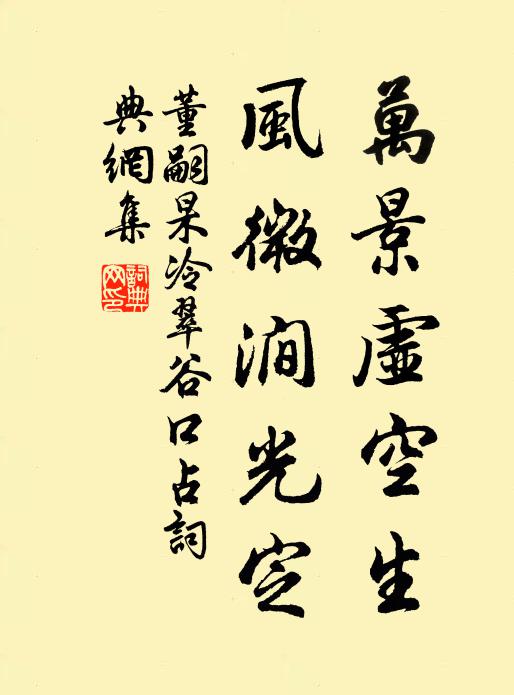 萬景虛空生
風微澗光定
董嗣杲冷翠谷口占詞
典網集
詞典网印